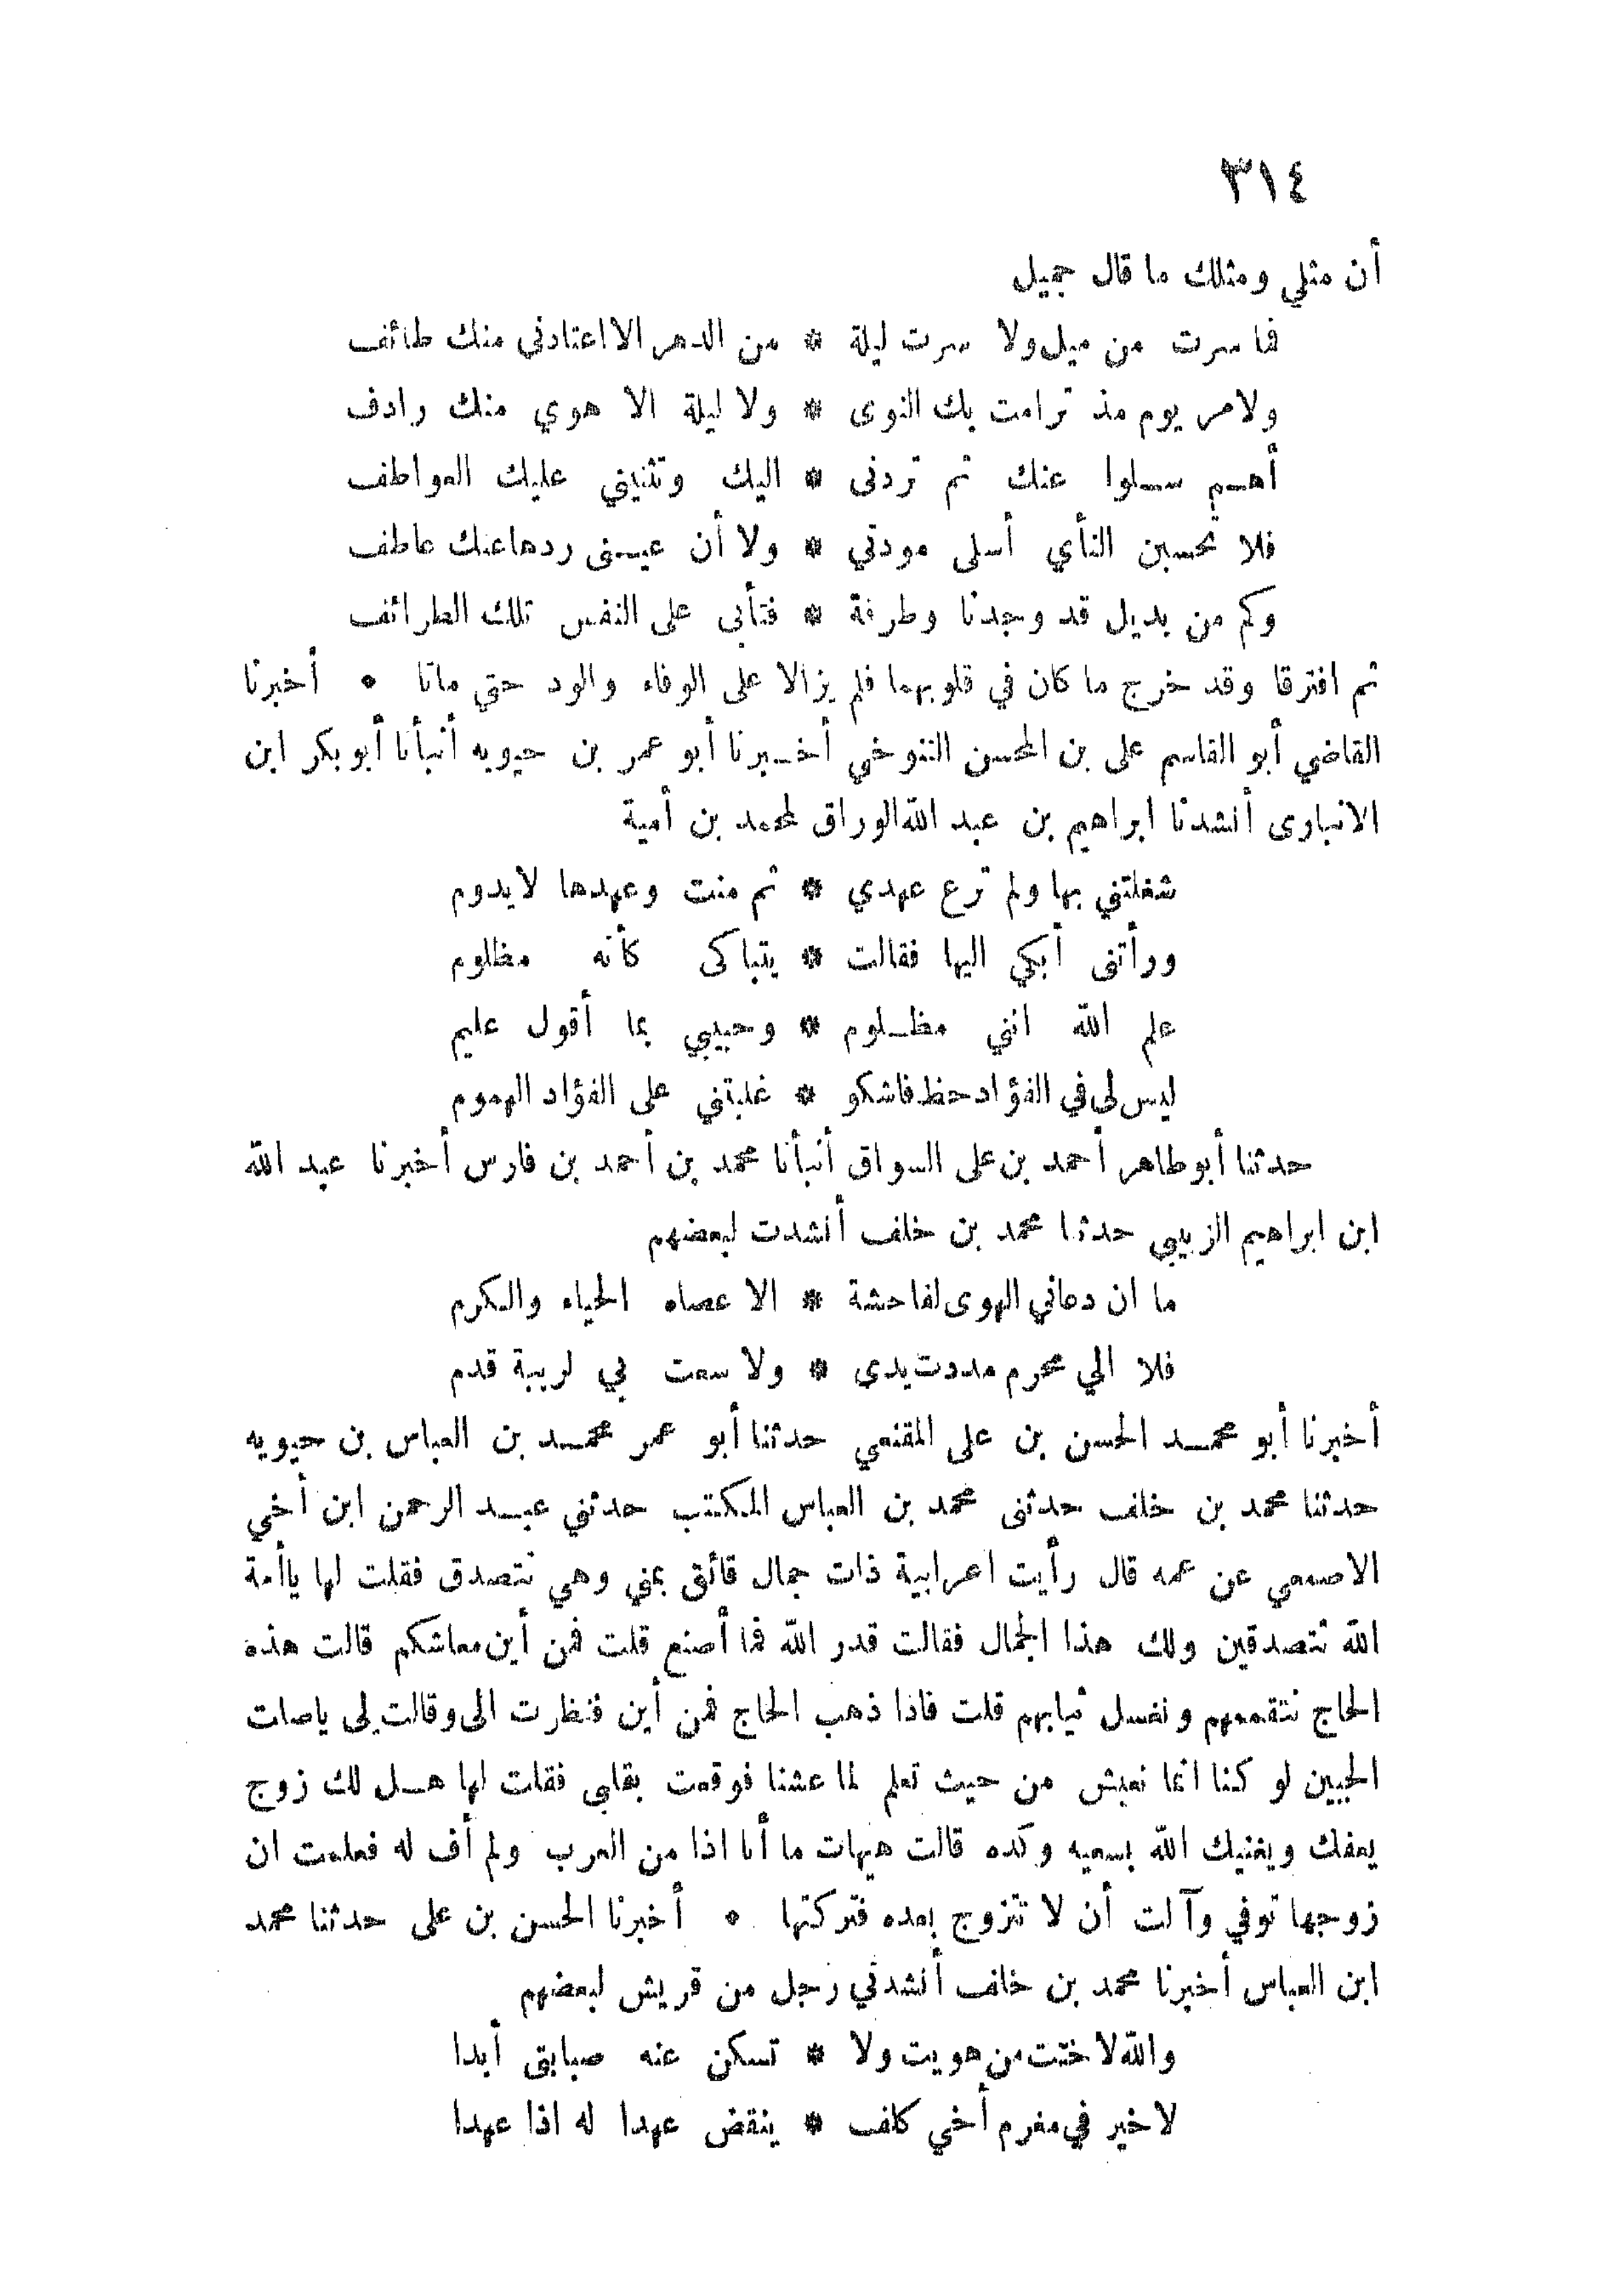 ٣١٤
أن مثلي ومثلك ما قال جميل
فما سرت من ميل ولا سرت ليلة * من الدهر الا اعتادنى منك طائف
ولا مر يوم مذ ترامت بك النوى * ولا ليلة الا هوي منك رادف
أهم سلوا عنك ثم تردنى * اليك وتثنيني عليك العواطف
فلا تحسبن النأي أسلى مودتي * ولا أن عينى ردها عنك عاطف
وكم من بديل قد وجدنا وطرفة * فتأبى على النفس تلك الطرائف
ثم افترقا وقد خرج ما كان في قلوبهما فلم يزالا على الوفاء والود حتي ماتا ٠ أخبرنا
القاضي أبو القاسم على بن المحسن التنوخي أخبرنا أبو عمر بن حيويه أنبأنا أبو بكر ابن
الانبارى أنشدنا ابراهيم بن عبد الله الوراق لمحمد بن أمية
شغلتني بها ولم ترع عهدي * ثم منت وعهدها لا يدوم
ورأتنى أبكي اليها فقالت * يتباكى كأنه مظلوم
علم الله انني مظلوم * وحبيبي بما أقول عليم
ليس لى في الفؤاد حظ فاشكو * غلبتني على الفؤاد الهموم
حدثنا أبو طاهر أحمد بن على السواق أنبأنا محمد بن أحمد بن فارس أخبرنا عبد الله
ابن ابراهيم الزبيبي حدثنا محمد بن خلف أنشدت لبعضهم
ما ان دعاني الهوى لفاحشة * الا عصاه الحياء والكرم
فلا الي محرم مددت يدي * ولا سعت بي لريبة قدم
أخبرنا أبو محمد الحسن بن على المقنعي حدثنا أبو عمر محمد بن العباس بن حيويه
حدثنا محمد بن خلف حدثنى محمد بن العباس المكتب حدثني عبد الرحمن ابن أخي
الاصمعي عن عمه قال رأيت اعرابية ذات جمال فائق بمني وهي تتصدق فقلت لها يا أمة
الله تتصدقين ولك هذا الجمال فقالت قدر الله فما أصنع قلت فمن أين معاشكم قالت هذه
الحاج نتقممهم ونغسل ثيابهم قلت فاذا ذهب الحاج فمن أين فنظرت الى وقالت لى يا صلت
الجبين لو كنا انما نعيش من حيث نعلم لما عشنا فوقعت بقلبي فقلت لها هل لك زوج
يعفك ويغنيك الله بسعيه وكده قالت هيهات ما أنا اذا من العرب ولم أف له فعلمت ان
زوجها توفي وآلت أن لا تتزوج بعده فتركتها ٠ أخبرنا الحسن بن على حدثنا محمد
ابن العباس أخبرنا محمد بن خلف أنشدني رجل من قريش لبعضهم
والله لا خنت من هويت ولا * تسكن عنه صبابتى أبدا
لا خير في مغرم أخي كلف * ينقض عهدا له اذا عهدا